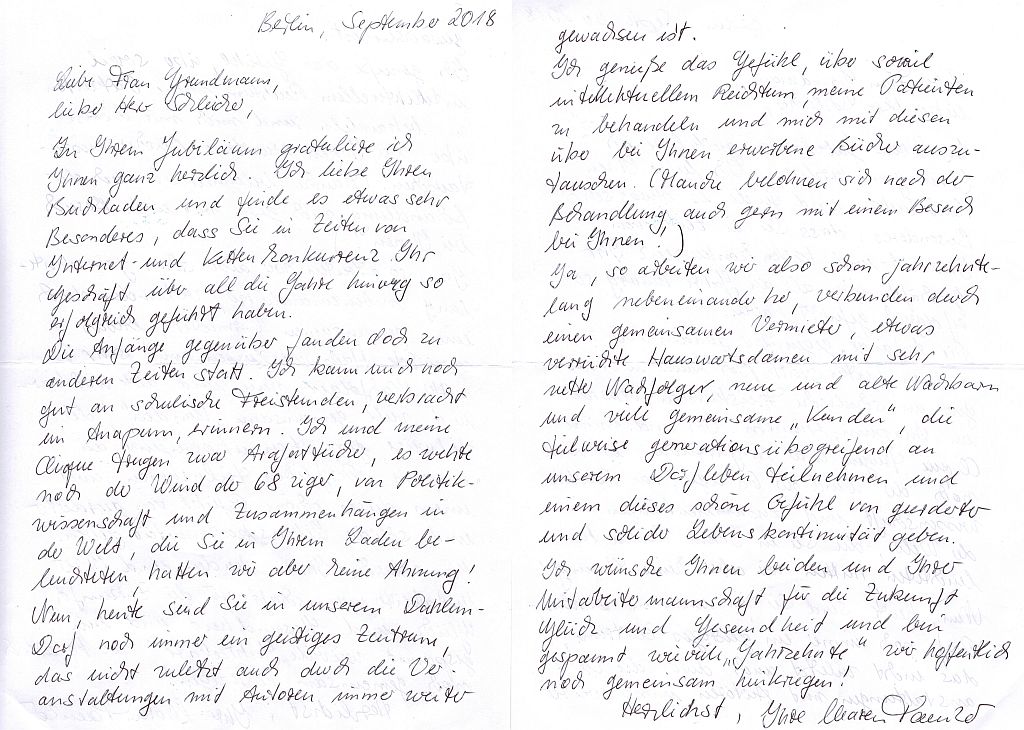 Berlin, September 2018
Liebe Frau Grundmann,
lieber Herr Schleicher,
Zu Ihrem Jubiläum gratuliere ich
Ihnen ganz herzlich. Ich liebe Ihren
Buchladen und finde es etwas sehr
Besonderes, dass Sie in Zeiten von
Internet- und Kettenkonkurrenz Ihr
Geschäft über all die Jahre hinweg so
erfolgreich geführt haben.
Die Anfänge gegenüber fanden doch zu
anderen Zeiten statt. Ich kann mich noch
gut an schulische Freistunden, verbracht
im Anapam, erinnern. Ich und meine
Clique trugen zwar Arafattücher, es wehte
noch der Wind der 68ziger, von Politik-
wissenschaft und Zusammenhängen in
der Welt, die Sie in Ihrem Laden be-
leuchteten, hatten wir aber keine Ahnung!
Nun, heute sind Sie in unserem Dahlem-
Dorf noch immer ein geistiges Zentrum,
das nicht zuletzt auch durch die Ver-
anstaltungen mit Autoren immer weiter
gewachsen ist.
Ich genieße das Gefühl, über soviel
intellektuellem Reichtum, meine Patienten
zu behandeln und mich mit diesen
über bei Ihnen erworbene Bücher auszu-
tauschen. (Manche belohnen sich nach der
Behandlung auch gern mit einem Besuch
bei Ihnen!)
Ja, so arbeiten wir also schon jahrzehnte-
lang nebeneinander her, verbunden durch
einen gemeinsamen Vermieter, etwas
verrückte Hauswartsdamen mit sehr
netter Nachfolger, neue und alte Nachbarn
und viele gemeinsame „Kunden“, die
teilweise generationsübergreifend an
unserem Dorfleben teilnehmen und
einem dieses schöne Gefühl von geerdeter
und solider Lebenskontinuität geben.
Ich wünsche Ihnen beiden und Ihrer
Mitarbeitermannschaft für die Zukunft
Glück und Gesundheit und bin
gespannt wieviele „Jahrzehnte“ wir hoffentlich
noch gemeinsam hinkriegen!
Herzlichst, Ihre Maren